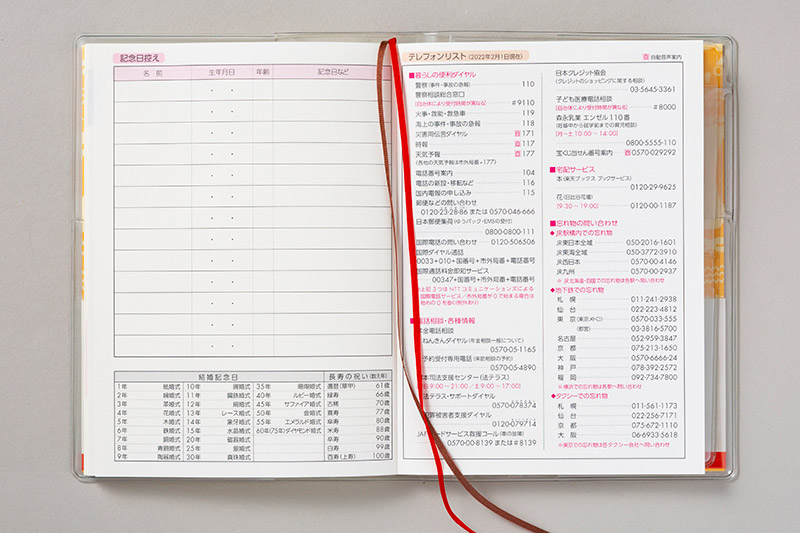 記念日控え
名 前 生年月日 年齢 記念日など
結婚記念日 長寿の祝い(数え年)
1年 紙婚式 10年 錫婚式 35年 珊瑚婚式 還暦(華甲) 61歳
2年 綿婚式 11年 鋼鉄婚式 40年 ルビー婚式 緑寿 66歳
3年 革婚式 12年 絹婚式 45年 サファイア婚式 古稀 70歳
4年 花婚式 13年 レース婚式 50年 金婚式 喜寿 77歳
5年 木婚式 14年 象牙婚式 55年 エメラルド婚式 傘寿 80歳
6年 鉄婚式 15年 水晶婚式 60年(75年)ダイヤモンド婚式 米寿 88歳
7年 銅婚式 20年 磁器婚式 卒寿 90歳
8年 青銅婚式 25年 銀婚式 白寿 99歳
9年 陶器婚式 30年 真珠婚式 百寿(上寿) 100歳
テレフォンリスト(2022年2月1日現在)
自動音声案内
■暮らしの便利ダイヤル
警察(事件・事故の急報) 110
警察相談総合窓口
(自治体により受付時間が異なる) #9110
火事・救助・救急車 119
海上の事件・事故の急報 118
災害用伝言ダイヤル 171
時報 117
天気予報 177
(各地の天気予報は市外局番+177)
電話番号案内 104
電話の新設・移転など 116
国内電報の申し込み 115
郵便などの問い合わせ
0120-23-28-86 または 0570-046-666
日本郵便集荷(ゆうパック・EMSの受付)
0800-0800-111
国際電話の問い合わせ 0120-506506
国際ダイヤル通話
0033+010+国番号+市外局番+電話番号
国際通話料金即知サービス
00347+国番号+市外局番+電話番号
上記3つはNTTコミュニケーションズによる
国際電話サービス/市外局番が0で始まる場合は
始めの0を省く(例外あり)
電話相談・各種情報
年金電話相談
ねんきんダイヤル(年金相談一般について)
0570-05-1165
予約受付専用電話(来訪相談の予約)
0570-05-4890
日本司法支援センター(法テラス)
9:00~21:00/土 9:00~17:00)
法テラス・サポートダイヤル
0570-078374
犯罪被害者支援ダイヤル
0120-079714
JAFロードサービス救援コール(車の故障)
0570-00-8139 または #8139
日本クレジット協会
(クレジットのショッピングに関する相談)
03-5645-3361
子ども医療電話相談
(自治体により受付時間が異なる) #8000
森永乳業 エンゼル110番
(妊娠中から就学前までの育児相談)
(月~土 10:00~14:00)
0800-5555-110
宝くじ当せん番号案内 0570-029292
■宅配サービス
本(楽天ブックス ブックサービス)
0120-29-9625
花(日比谷花壇)
(9:30~19:00) 0120-00-1187
■忘れ物の問い合わせ
◆JR駅構内での忘れ物
JR東日本全域 050-2016-1601
JR東海全域 050-3772-3910
JR西日本 0570-00-4146
JR九州 0570-00-2937
※JR北海道・四国での忘れ物は各駅へ問い合わせ
◆地下鉄での忘れ物
札 幌 011-241-2938
仙 台 022-223-4812
東 京(東京メトロ) 0570-033-555
(都営) 03-3816-5700
名古屋 052-959-3847
京 都 075-213-1650
大 阪 0570-6666-24
神 戸 078-392-2572
福 岡 092-734-7800
※横浜での忘れ物は各駅へ問い合わせ
◆タクシーでの忘れ物
札 幌 011-561-1173
仙 台 022-256-7171
京 都 075-672-1110
大 阪 06-6933-5618
※東京での忘れ物は各タクシー会社へ問い合わせ